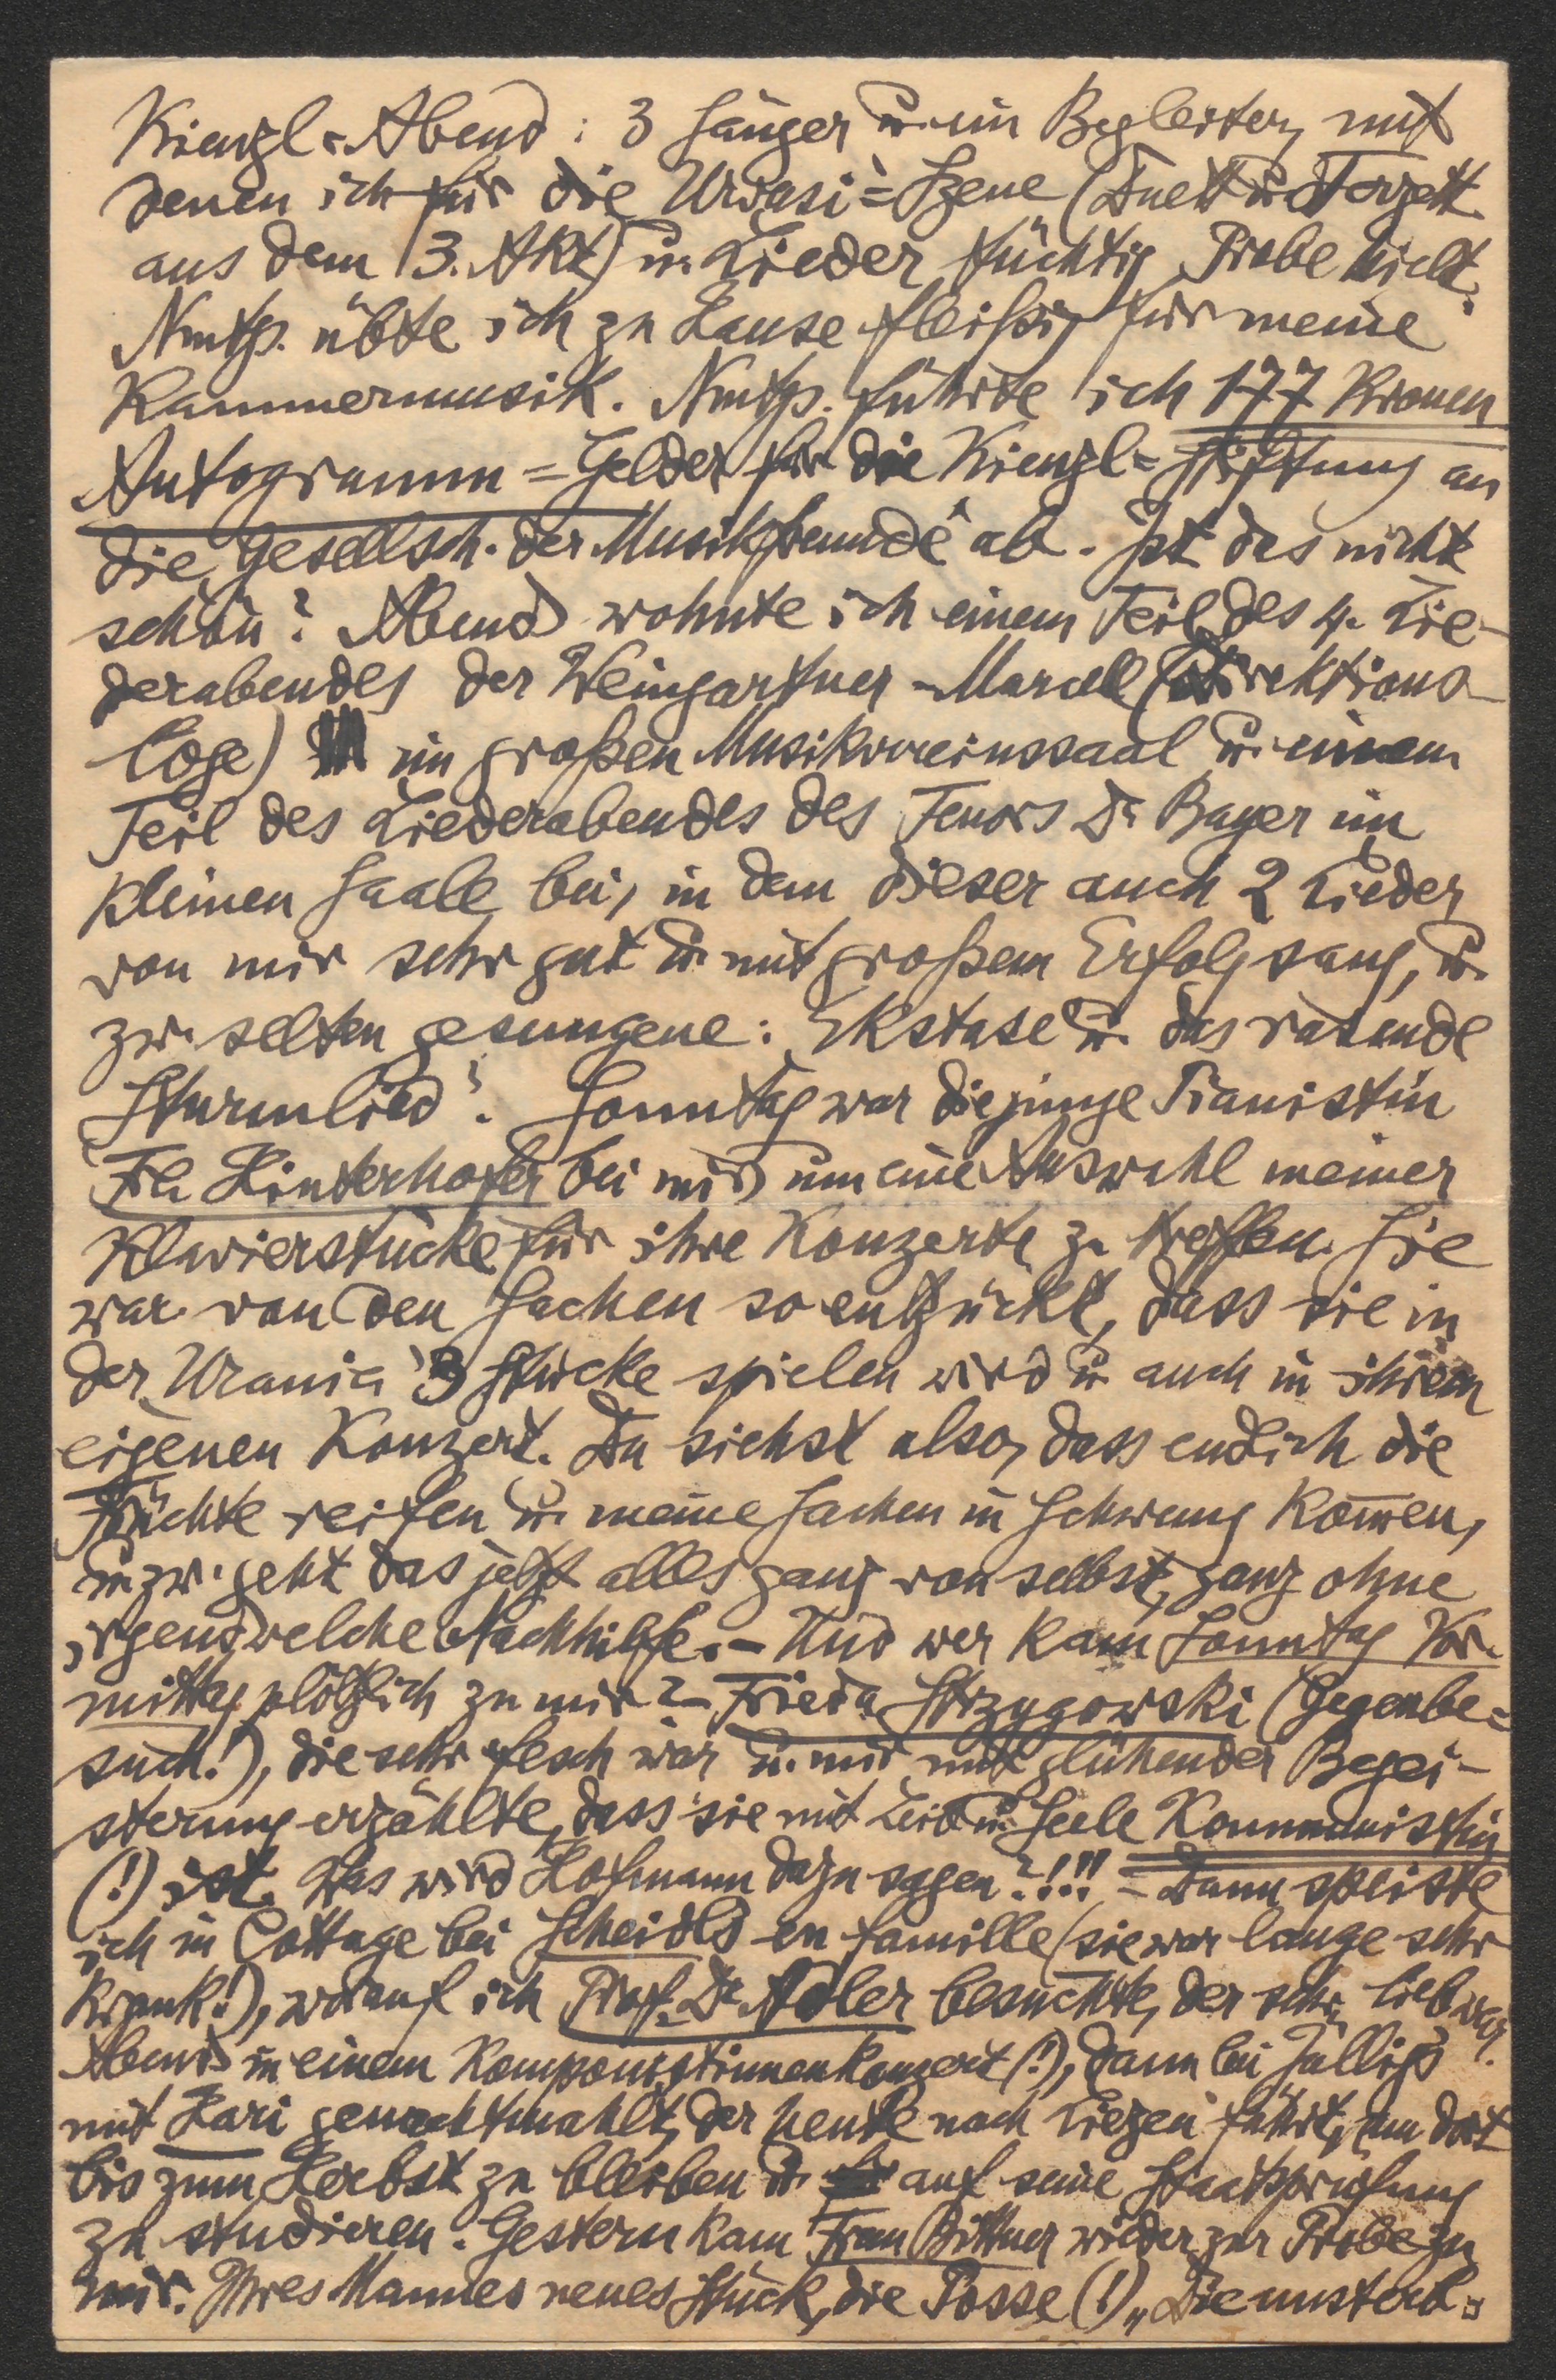 Kienzl-Abend: 3 Sänger u. ein Begleiter, mit
denen ich für die Urvasi-Szene (Duett u. Terzett
aus dem 3. Akt) u. Lieder tüchtig Probe hielt.
Nmtg. übte ich zu Hause fleißig für meine
Kammermusik. Nmtg. führte ich 177 Kronen
Autogramm-Gelder für die Kienzl-Stiftung an
die „Gesellsch. der Musikfreunde“ ab. Ist das nicht
schön? Abend wohnte ich einem Teil des 4. Lie-
derabendes der Weingartner-Marcell (Direktions-
loge) im großen Musikvereinssaal u. einem
Teil des Liederabendes des Tenors Dr Bayer im
kleinen Saale bei, in dem dieser auch 2 Lieder
von mir sehr gut u. mit großem Erfolg sang, u.
zw. selten gesungene: „Ekstase u. das rasende
Sturmlied“. Sonntag war die junge Pianistin
Frl. Hinterhofer bei mir um eine Auswahl meiner
Klavierstücke für ihre Konzerte zu treffen. Sie
war von den Sachen so entzückt, dass sie in
der „Urania“ 3 Stücke spielen wird u. auch in ihrem
eigenen Konzert. Du siehst also, dass endlich die
Früchte reifen u. meine Sachen in Schwung kom̅en,
u. zw. geht das jetzt alles ganz von selbst, ganz ohne
irgendwelche Nachhilfe. – Und wer kam Sonntag Vor-
mittag plötzlich zu mir? – Frieda Strzygowski (Gegenbe-
such!), die sehr fesch war u. mir mit glühender Begei-
sterung erzählte, dass sie mit Leib u. Seele Kommunistin
(!) ist. Was wird Hofmann dazu sagen?!!! – Dann speiste
ich in Cottage bei Scheidls en famille (sie war lange sehr
krank!), worauf ich Prof. Dr Adler besuchte, der sehr lieb war.
Abend in einem Komponistinnenkonzert (!), dann bei
mit Hari genachtmahlt, der heute nach Liezen fährt, um dort
bis zum Herbst zu bleiben u. auf seine Staatsprüfung
zu studieren. Gestern kam Frau Bittner wieder zur Probe zu
mir. Ihres Mannes neues Stück, die Posse (!) „Die unsterb-